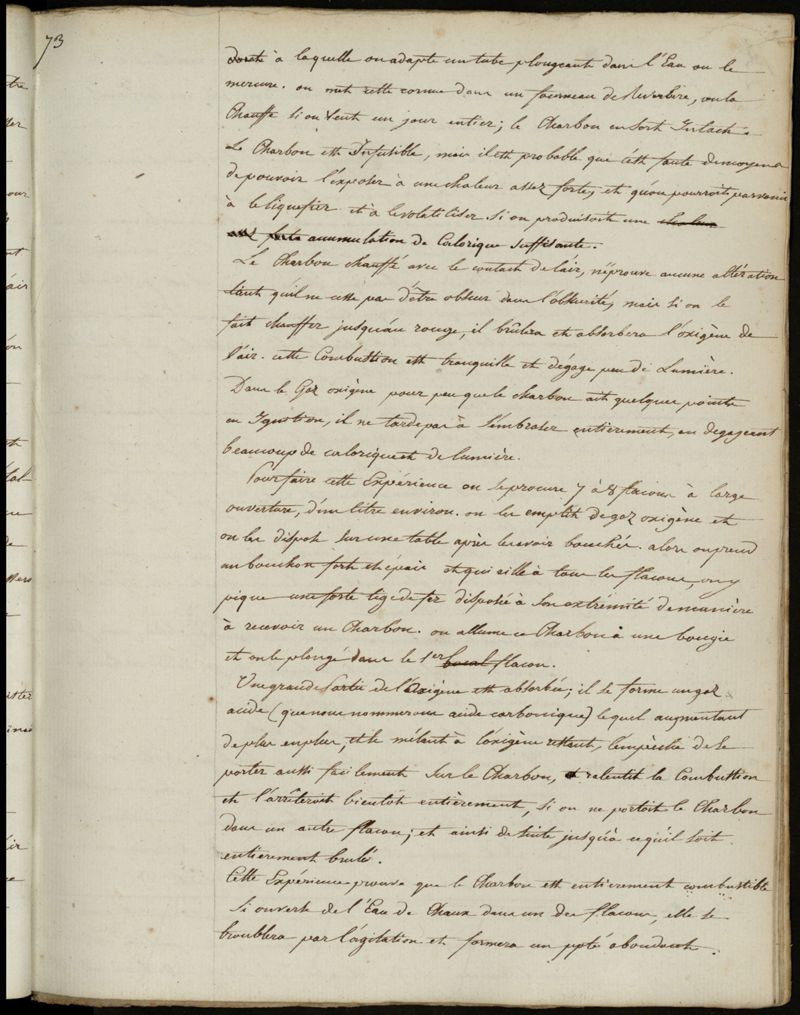 73
à laquelle on adapte un tube plongeant dans l'Eau ou le
mercure. on met cette cornue dans un fourneau de Réverbère, on la
Chauffe si on Veut un jour entier; le Charbon en sort Intact.
Le Charbon est Infusible, mais il est probable que c'est faute de moyens
de pouvoir l'exposer à une chaleur assez forte, et qu'on pourroit parvenir
à le liquefier et à le volatiliser si on produisoit une chaleur
assez forte accumulation de Calorique suffisante.
Le Charbon chauffé avec le contact de l'air, n'éprouve aucune altération
tant qu'il ne cesse pas d'être obscur dans l'obscurité, mais si on le
fait chauffer jusqu'au rouge, il brûlera et absorbera l'oxigène de
l'air. cette Combustion est tranquille et dégage peu de Lumière.
Dans le Gaz oxigène pour peu que le charbon ait quelques points
en Ignition, il ne tarde pas à s'embraser entierement, en degageant
beaucoup de calorique et de lumière.
Pour faire cette Expérience on se procure 7 à 8 flacons à large
ouverture, d'un litre environ. on les emplit de gaz oxigène et
on les dispose sur une table après les avoir bouchés. alors on prend
un bouchon fort et épais et qui aille à tous les flacons, on y
pique une forte tige de fer disposée à son extrémité de manière
à recevoir un Charbon. on allume ce Charbon à une bougie
et on le plonge dans le 1er bocal flacon.
Une grande Partie de l'Oxigène est absorbée; il se forme un gaz
acide (que nous nommerons acide carbonique) lequel augmentant
de plus en plus, et se mêlant à l'oxigène restant, l'empêche de se
porter aussi facilement sur le Charbon, ralentit la Combustion
et l'arrêteroit bientôt entièrement, si on ne portoit le Charbon
dans un autre flacon; et ainsi de suite jusqu'à ce qu'il soit
entierement brulé.
Cette Expérience prouve que le Charbon est entierement combustible
Si on verse de l'Eau de Chaux dans un des flacons, elle se
troublera par l'agitation et formera un ppté abondant.